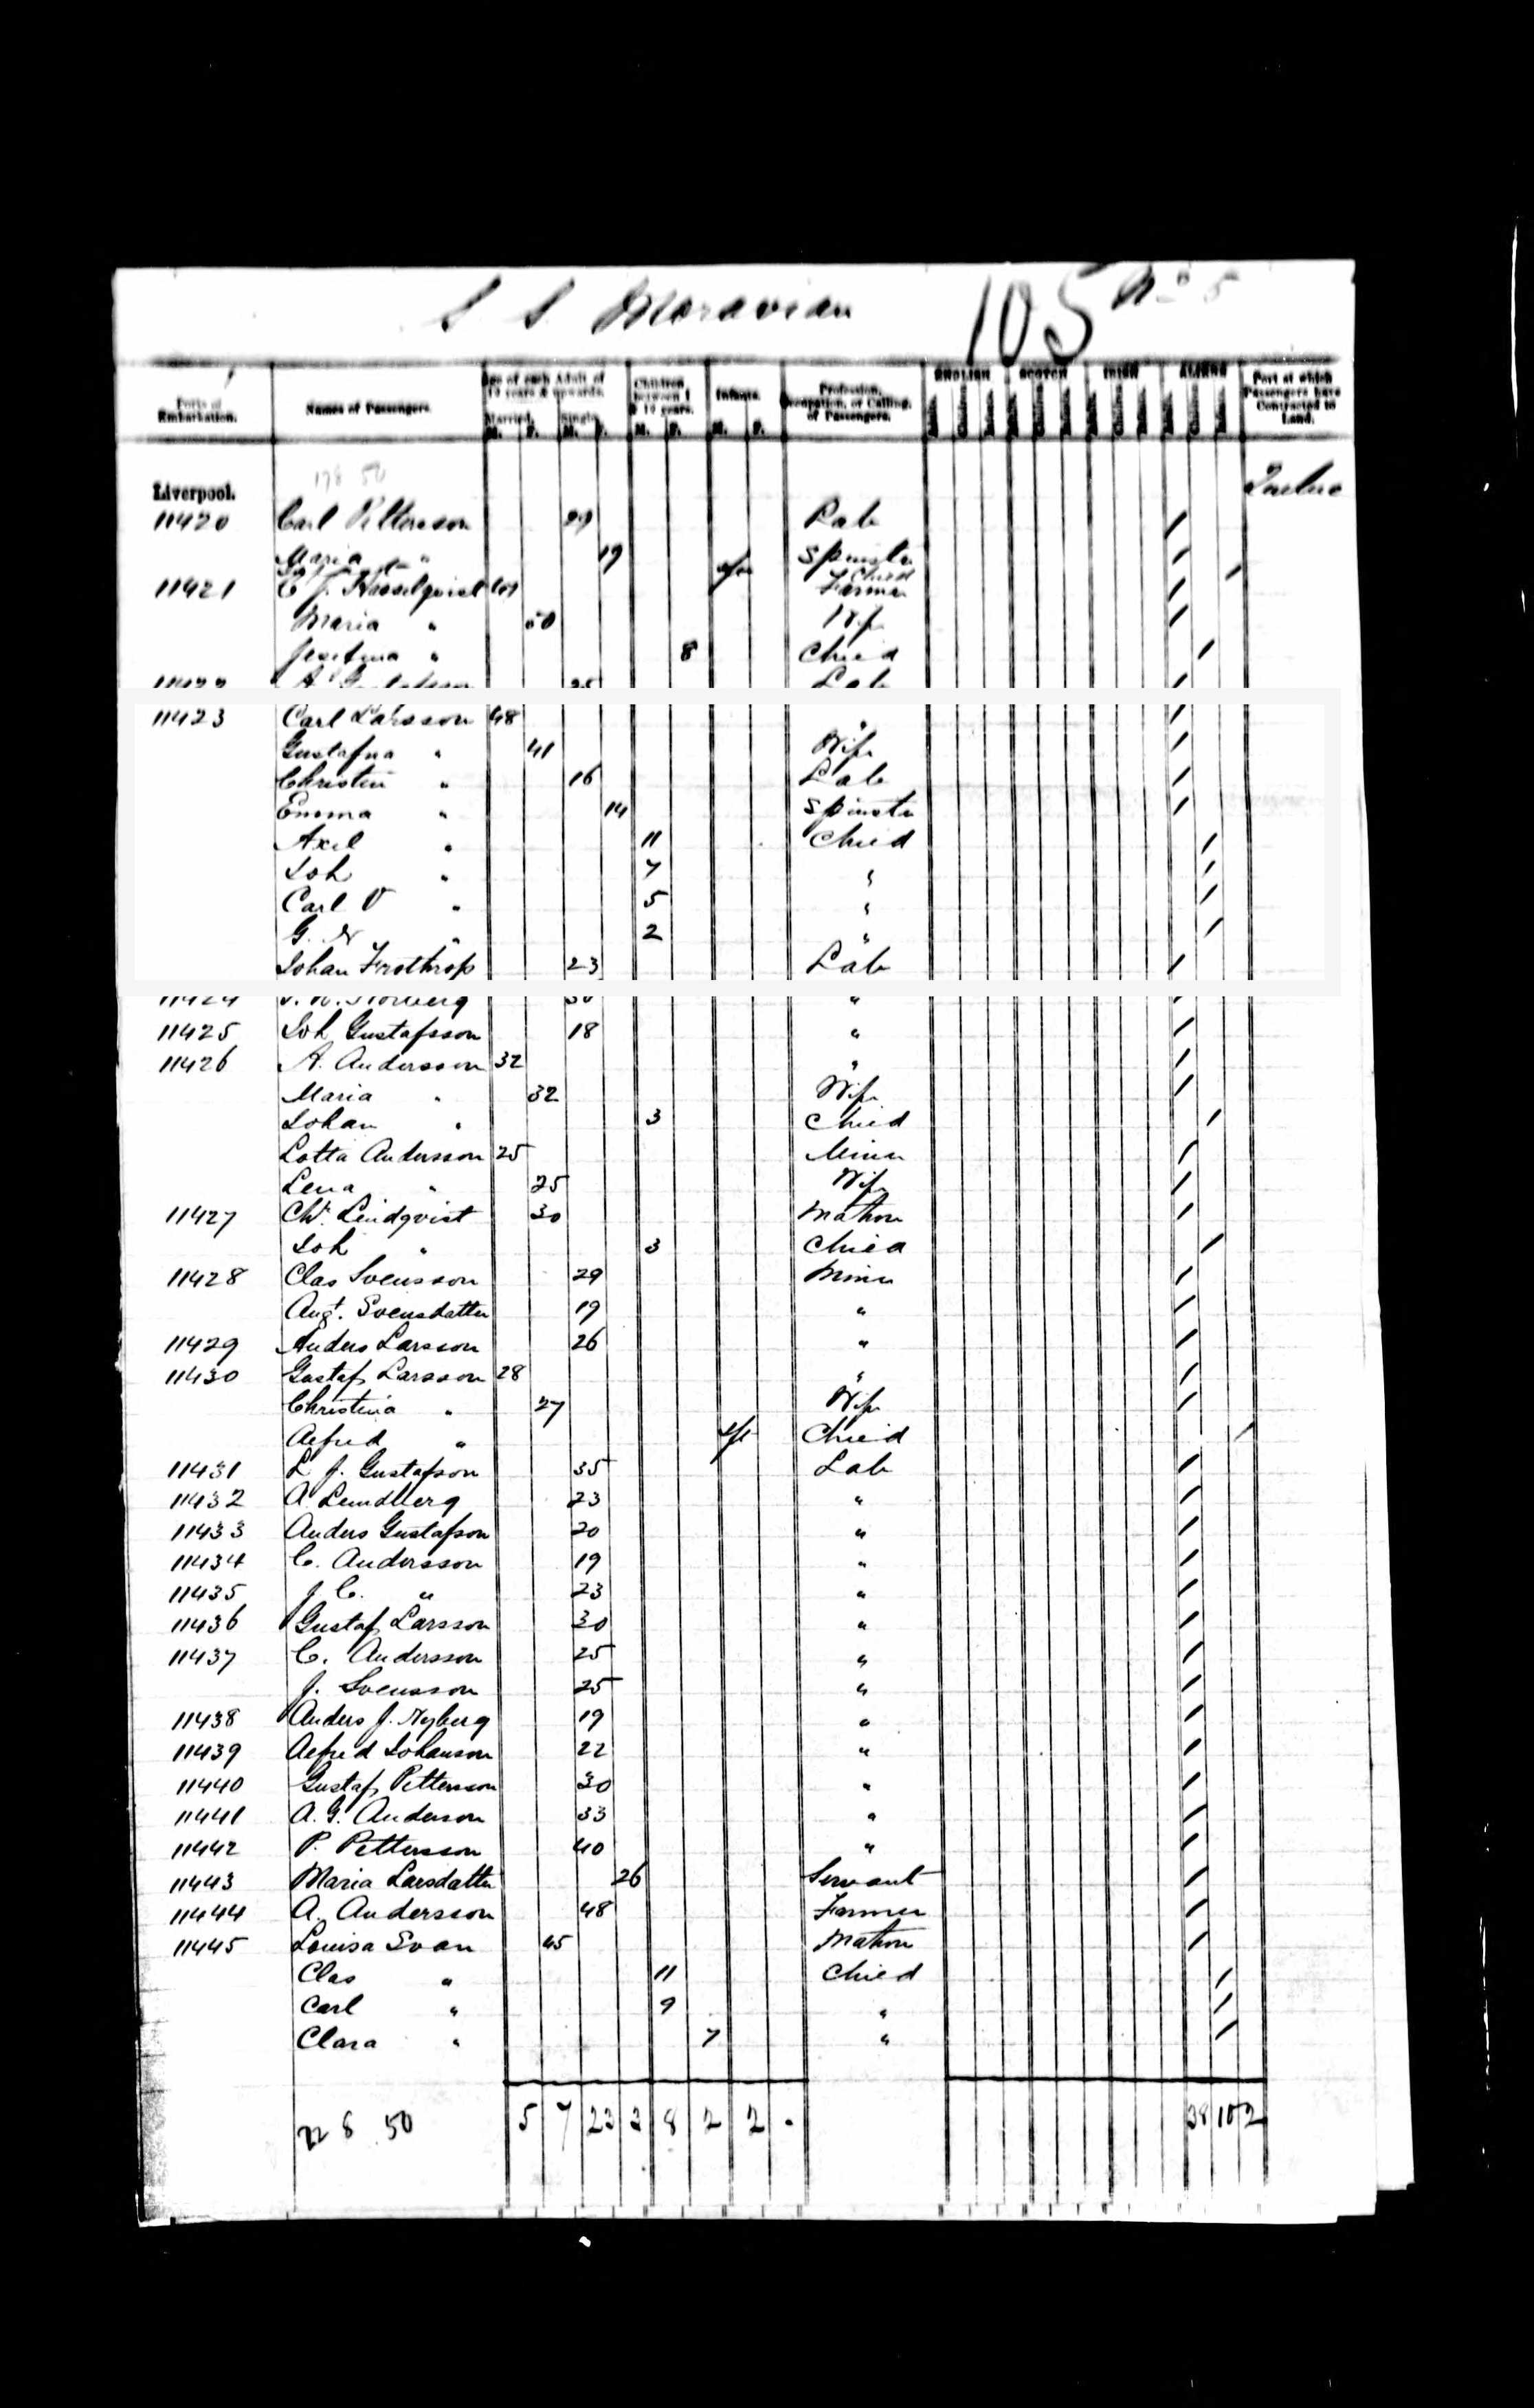 S S Moravian 105 No 5
Ports of Embarkation. Names of Passengers. Age of each Adult of 12 years & upwards. Children between 1 & 12 years. Infants. Profession, Occupation, or Calling of Passengers. ENGLISH SCOTCH IRISH ALIENS Port at which Passengers have Contracted to Land.
Married. Single.
M. F. M. F. M. F. M. F.
178 50
Liverpool. Quebec
11420 Carl Pettersson 29 Lab
Maria " 19 Spinster
Child
11421 C J. Hasselquist Farmer
Maria " 50 Wife
Josefina " 8 Child
11422 A. Gustafsson 25 Lab
11423 Carl Larsson 48 "
Gustafna " 41 Wife
Christin " 16 Lab
Emma " 14 Spinster
Axel " 11 Child
Joh " 7 "
Carl V " 5 "
G. N " 2 "
Johan Frothrop 23 Lab
11424 Norberg 30 "
11425 Joh Gustafsson 18 "
11426 A. Andersson 32 "
Maria " 32 Wife
Johan " 3 Child
Lotta Andersson 25 Miner
Lena " 25 Wife
11427 Chr. Lindqvist 30 Matron
Joh " 3 Child
11428 Clas Svensson 29 Miner
Augt. Svensdatter 19 "
11429 Anders Larsson 26 "
11430 Gustaf Larsson 28 "
Christina " 27 Wife
Alfred " Inft Child
11431 L J. Gustafson 35 Lab
11432 A Lundberg 23 "
11433 Anders Gustafson 20 "
11434 C. Andersson 19 "
11435 J C. " 23 "
11436 Gustaf Larsson 30 "
11437 C. Andersson 25 "
J. Svensson 25 "
11438 Anders J. Nyberg 19 "
11439 Alfred Johanson 22 "
11440 Gustaf Pettersson 30 "
11441 A. G. Anderson 33 "
11442 P. Pettersson 40 "
11443 Maria Larsdatter 26 Servant
11444 A. Andersson 48 Farmer
11445 Louisa Svan 45 Matron
Clas " 11 Child
Carl " 9 "
Clara " 7 "
22 8 50 5 7 23 3 8 2 2 . 38 10 2